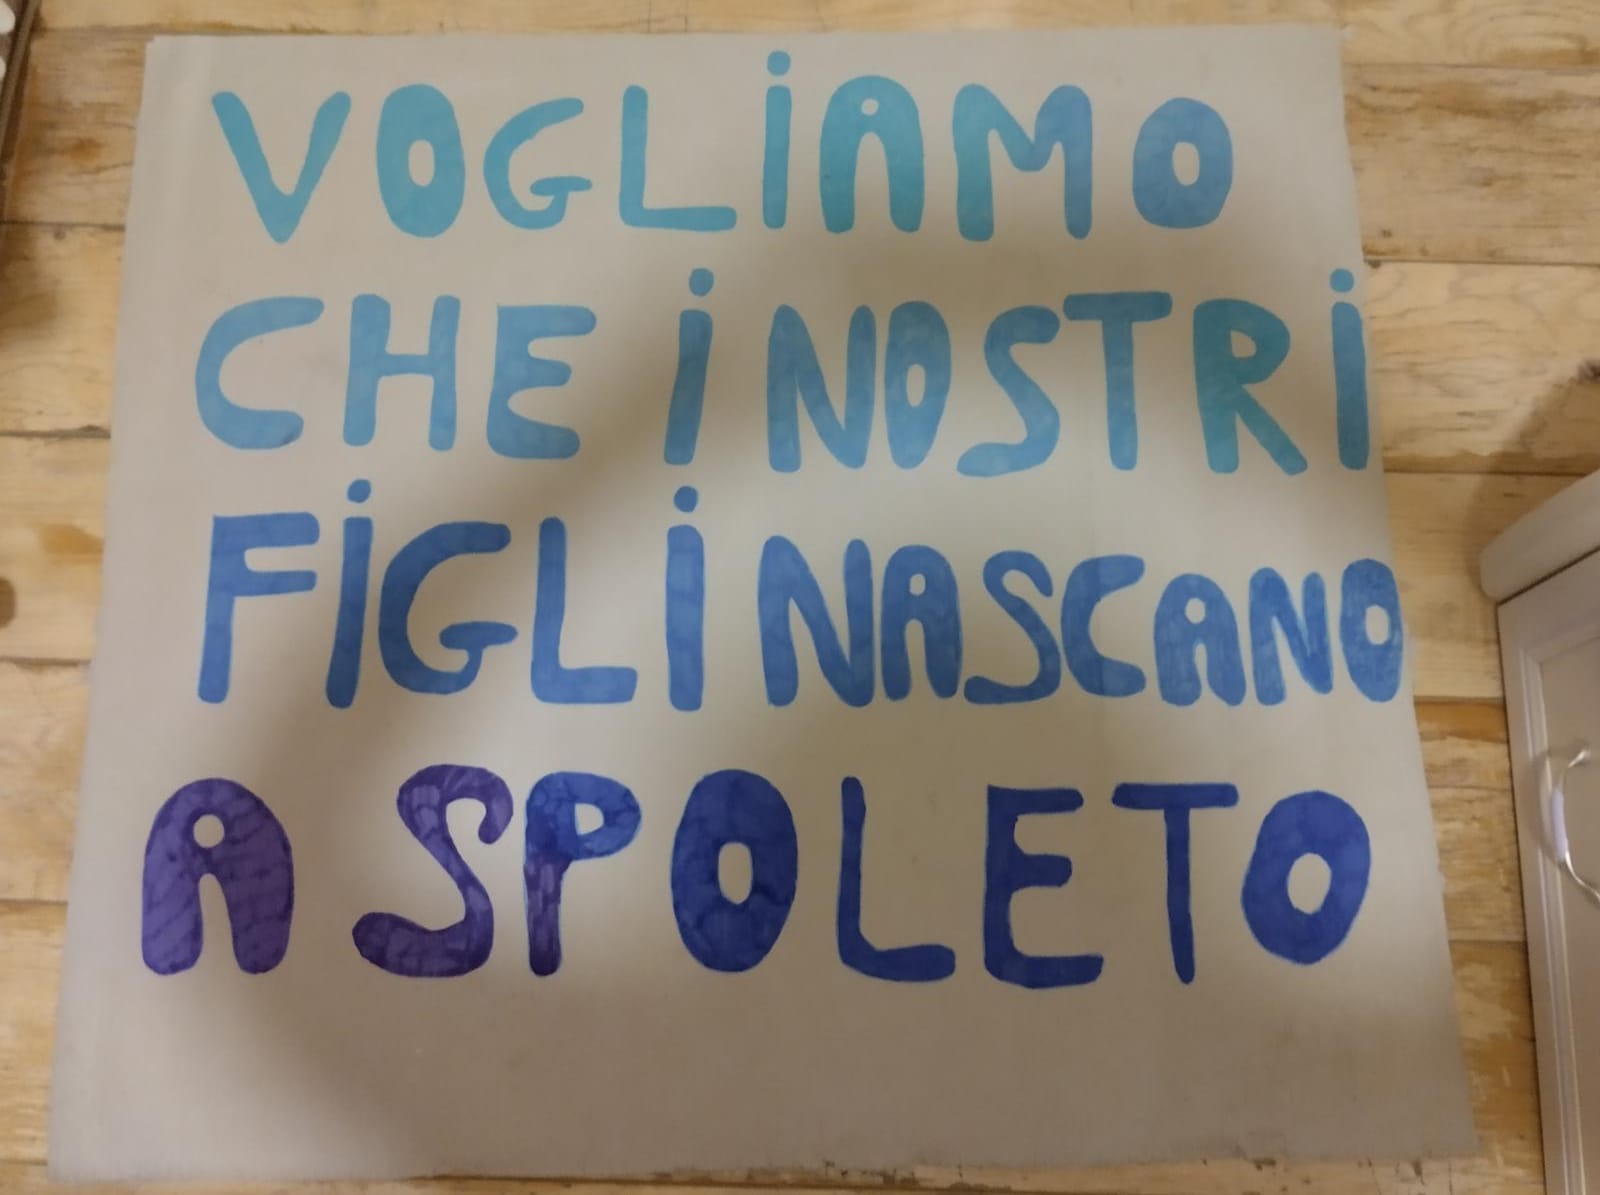 VOGLiAMO
CHE i NOSTRi
FiGLi NASCANO
A SPOLETO